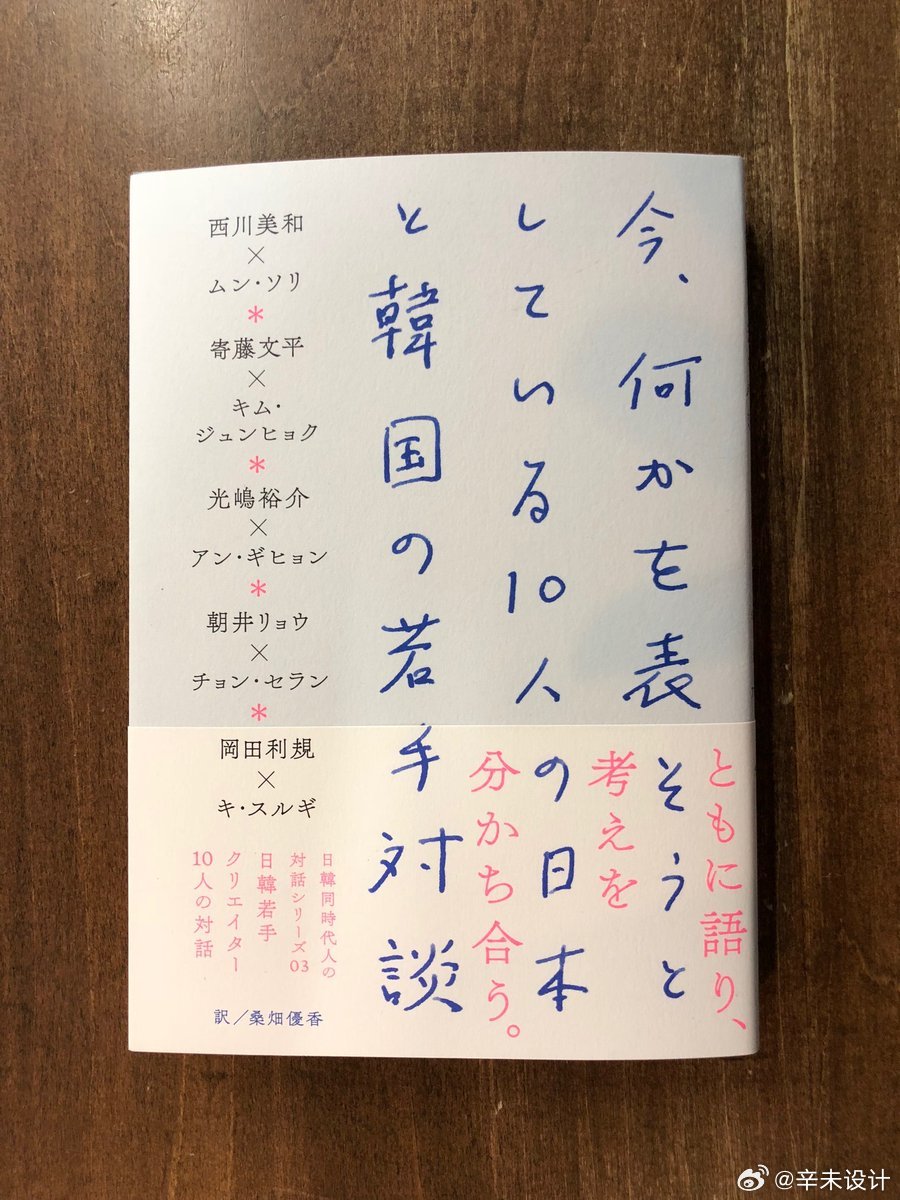 今、何かを表そうと
している10人の日本
と韓国の若手対談
西川美和
×
ムン・ソリ
*
寄藤文平
×
キム・
ジュンヒョク
*
光嶋裕介
×
アン・ギヒョン
*
朝井リョウ
×
チョン・セラン
*
岡田利規
×
キ・スルギ
ともに語り、
考えを
分かち合う。
日韓同時代人の
対話シリーズ03
日韓若手
クリエイター
10人の対話
訳／桑畑優香
@辛未设计